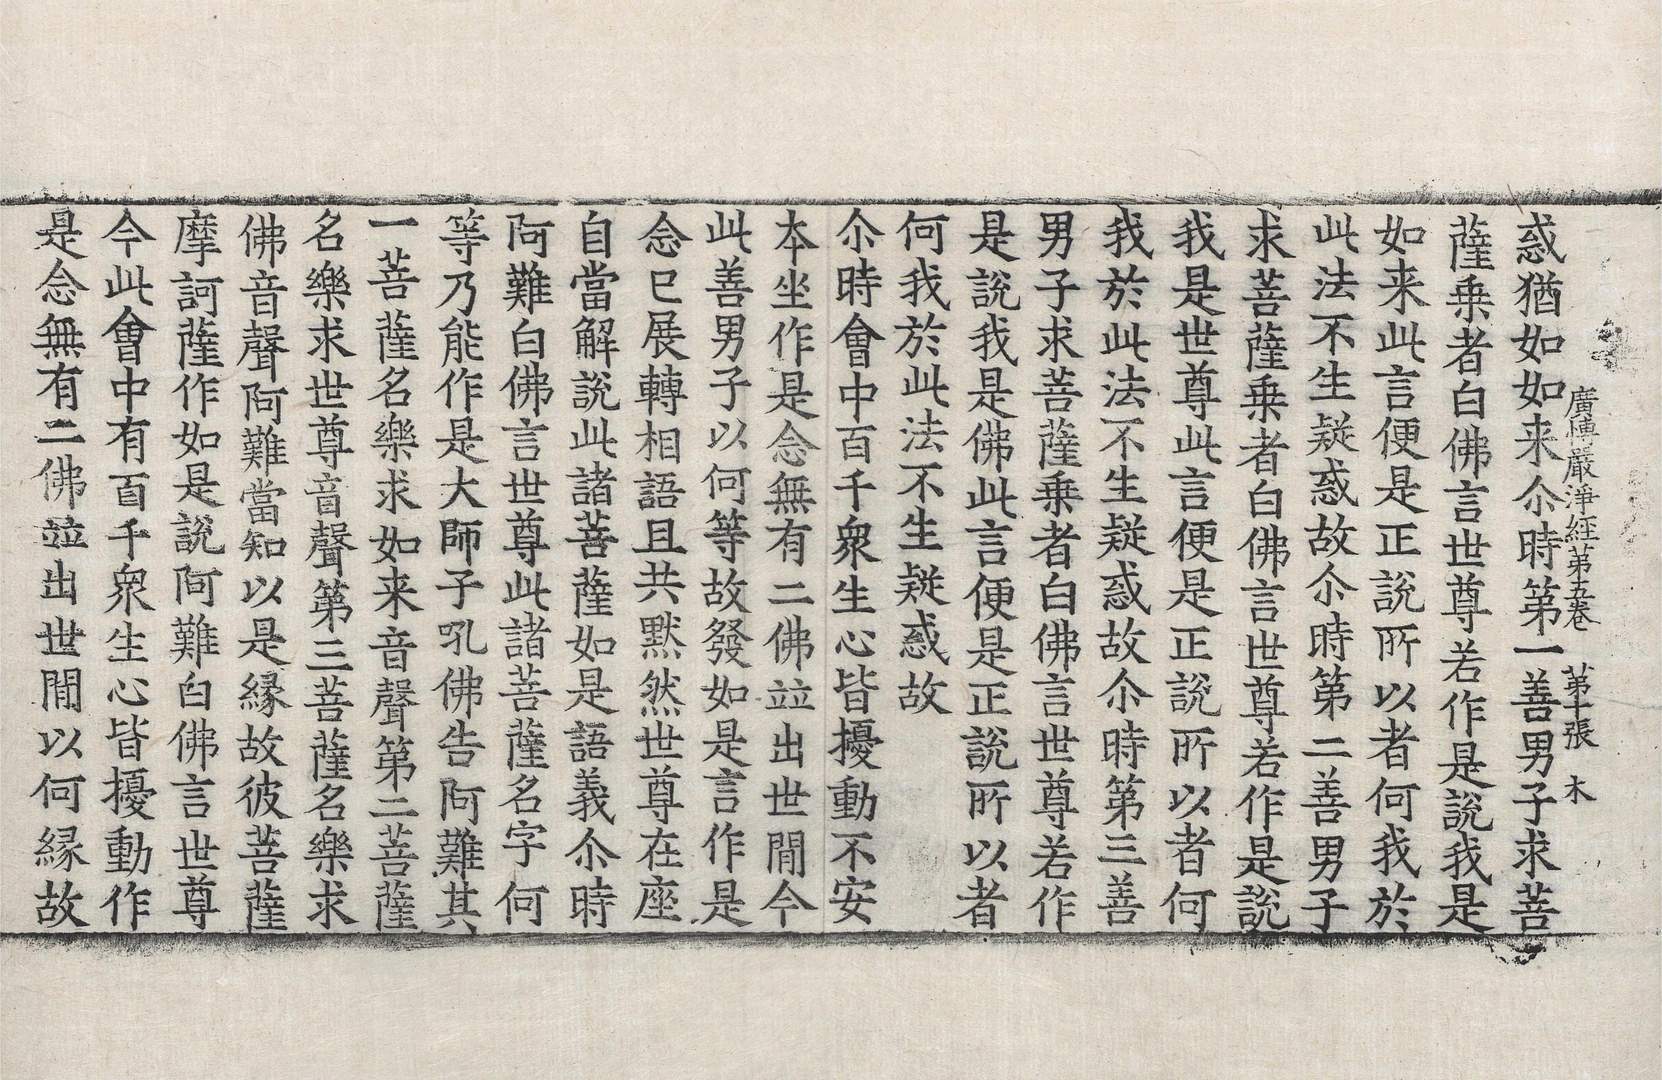 廣博嚴淨經第五卷 第十張 木
惑猶如如来尒時第一善男子求菩
薩乗者白佛言世尊若作是說我是
如来此言便是正說所以者何我於
此法不生疑惑故尒時第二善男子
求菩薩乗者白佛言世尊若作是說
我是世尊此言便是正說所以者何
我於此法不生疑惑故尒時第三善
男子求菩薩乗者白佛言世尊若作
是說我是佛此言便是正說所以者
何我於此法不生疑惑故
尒時會中百千衆生心皆擾動不安
本坐作是念無有二佛竝出世閒今
此善男子以何等故發如是言作是
念已展轉相語且共默然世尊在座
自當解說此諸菩薩如是語義尒時
阿難白佛言世尊此諸菩薩名字何
等乃能作是大師子吼佛告阿難其
一菩薩名樂求如来音聲第二菩薩
名樂求世尊音聲第三菩薩名樂求
佛音聲阿難當知以是縁故彼菩薩
摩訶薩作如是說阿難白佛言世尊
今此會中有百千衆生心皆擾動作
是念無有二佛竝出世閒以何縁故